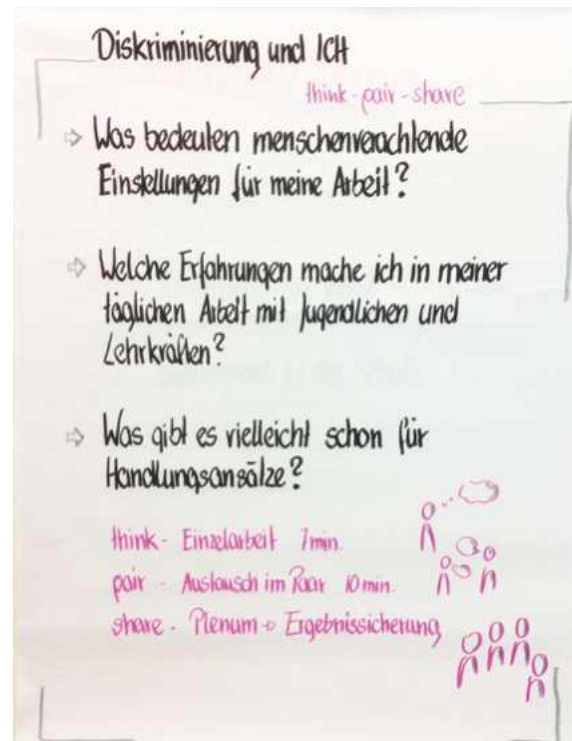 Diskriminierung und ICH
think-pair-share
⇨ Was bedeuten menschenverachtende
Einstellungen für meine Arbeit?
⇨ Welche Erfahrungen mache ich in meiner
täglichen Arbeit mit Jugendlichen und
Lehrkräften?
⇨ Was gibt es vielleicht schon für
Handlungsansätze?
think - Einzelarbeit 7min.
pair - Austausch im Paar 10min.
share - Plenum → Ergebnissicherung